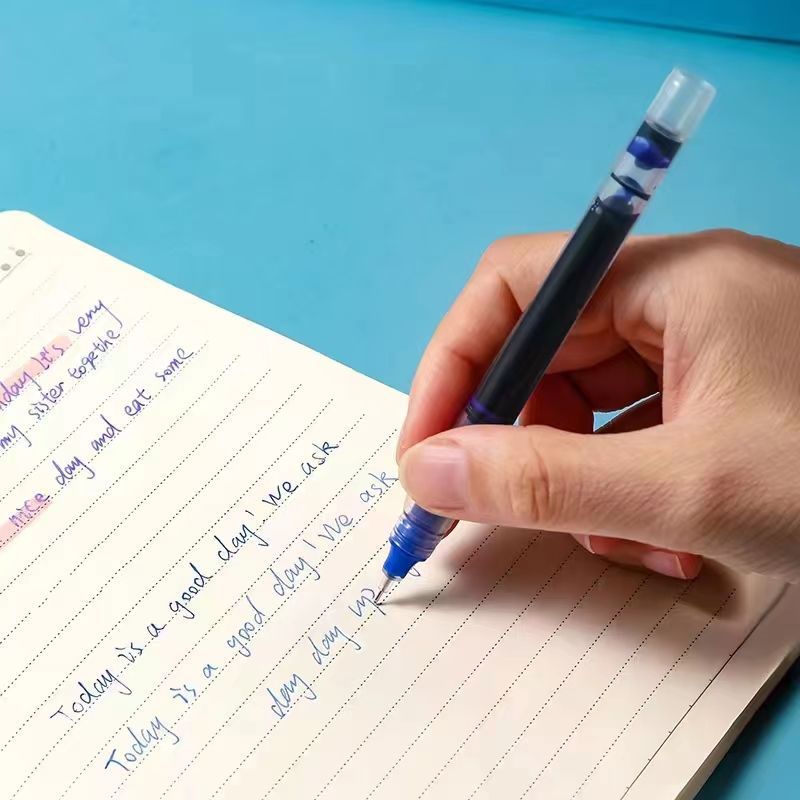 day it's very
my sister togethe
nice day and eat some
Today is a good day' we ask
Today is a good day' we ask
day day up